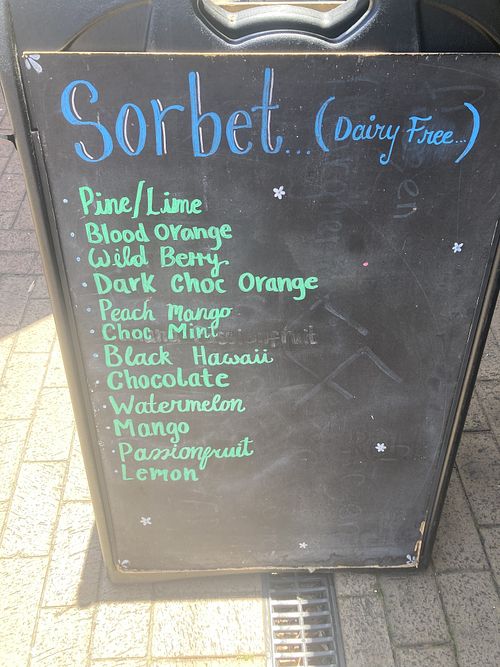 Sorbet... (Dairy Free...)
Pine/Lime
Blood Orange
Wild Berry
Dark Choc Orange
Peach Mango
Choc Mint
Black Hawaii
Chocolate
Watermelon
Mango
Passionfruit
Lemon